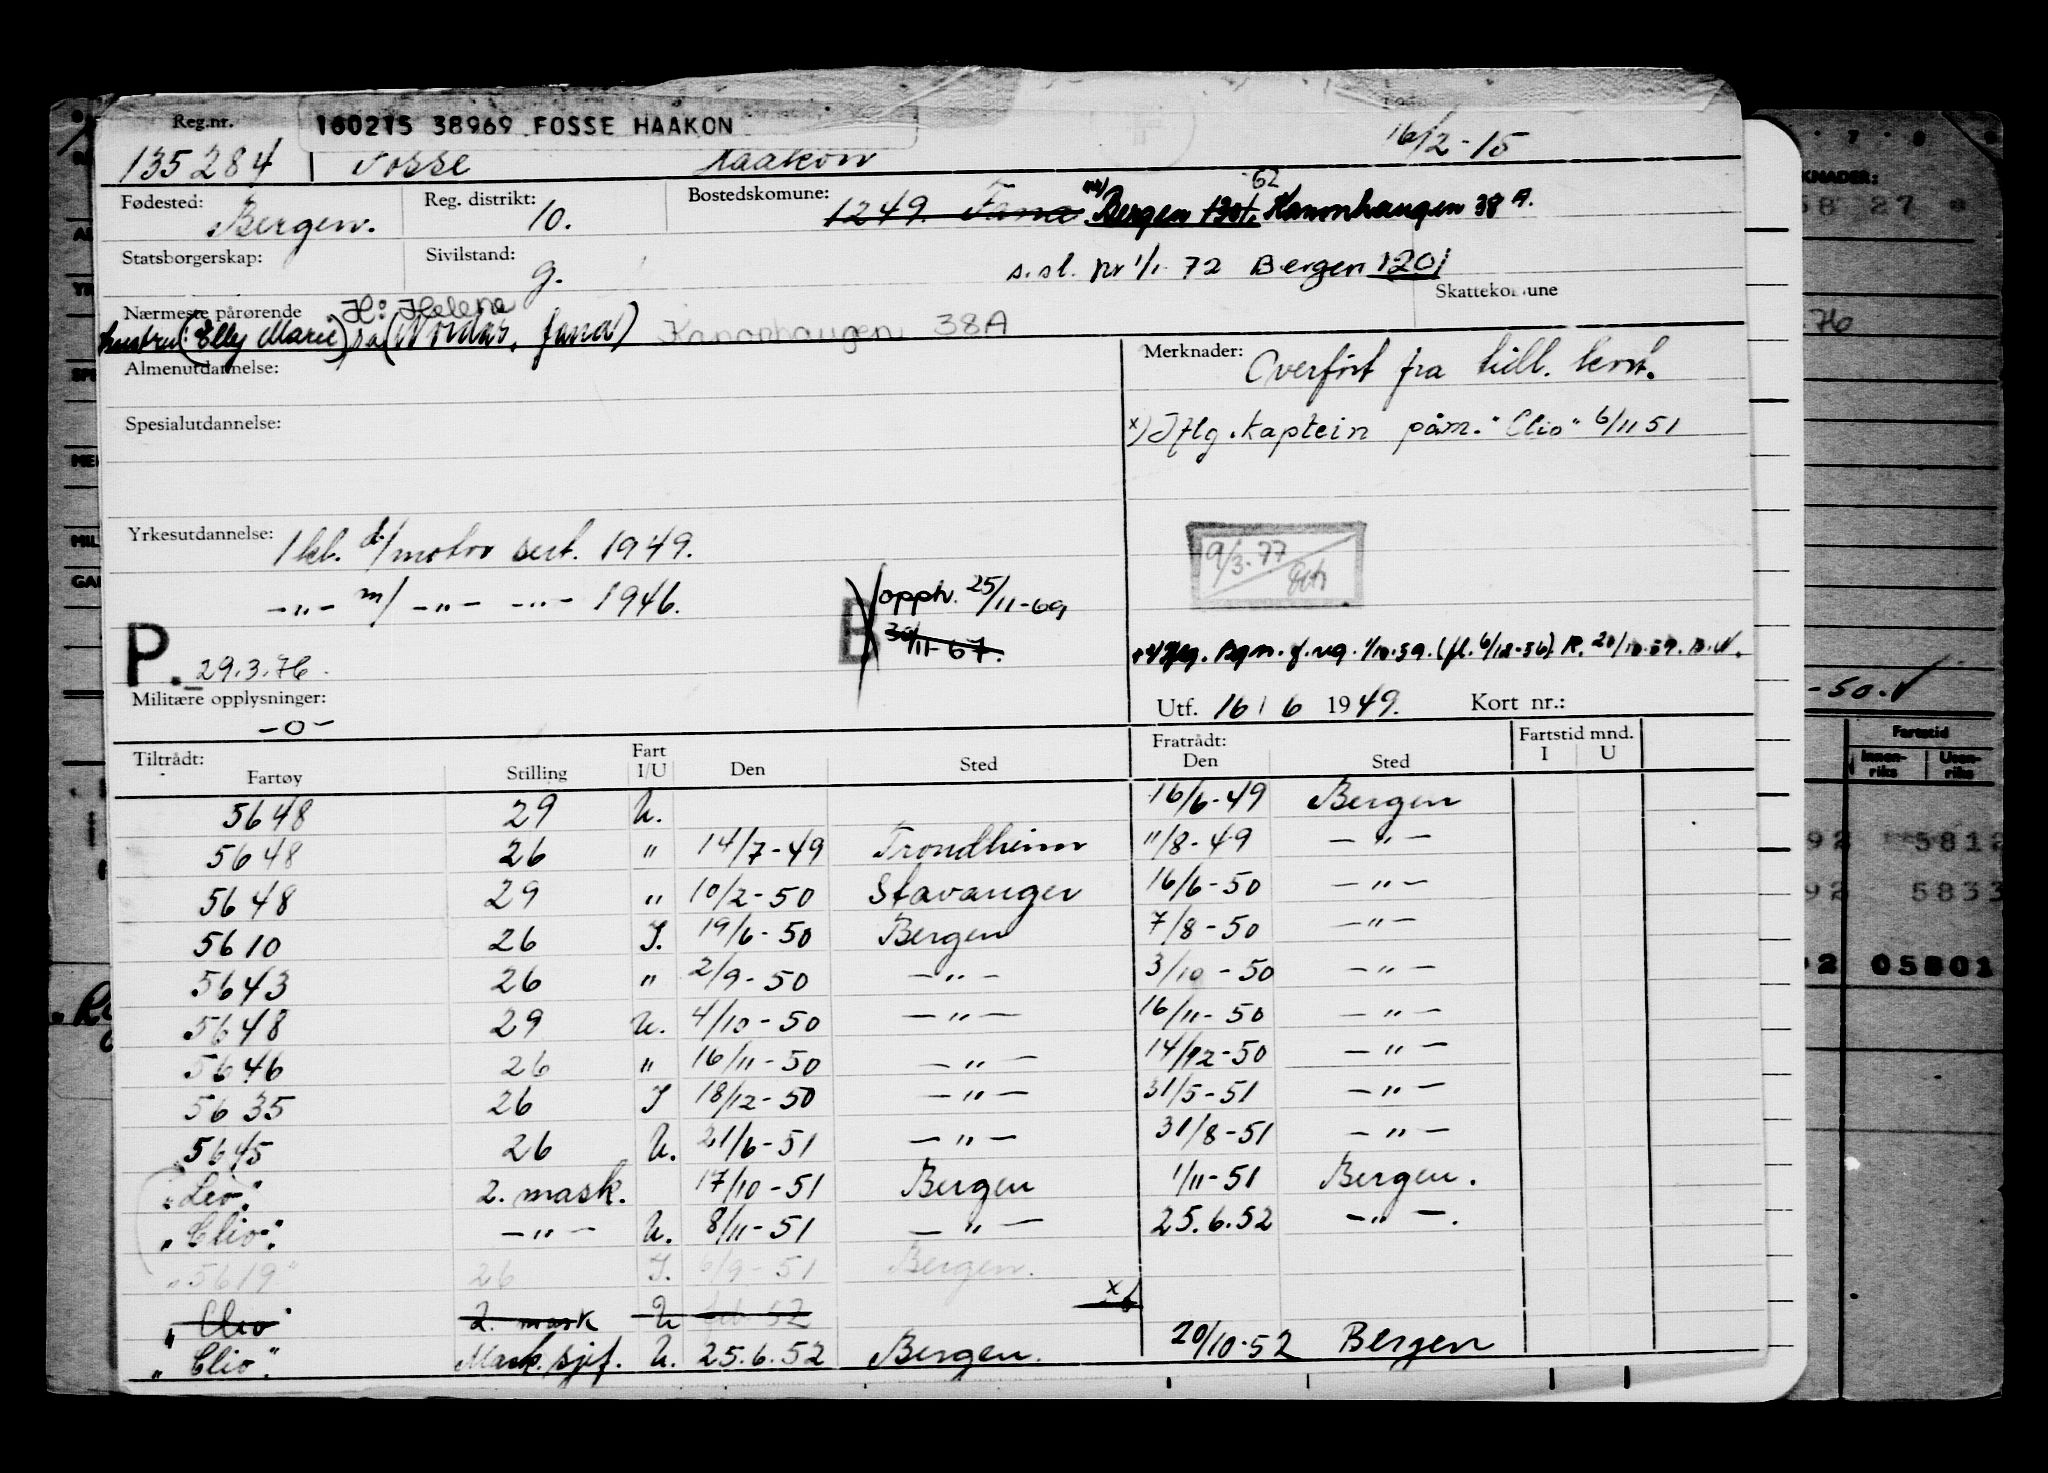 Reg.nr. 160215 38969 FOSSE HAAKON
135284 Fosse Haakon 16/2-15
Fødested: Bergen. Reg. distrikt: 10. Bostedskommune: 1249. Fana Bergen 1301. Kanonhaugen 38 A.
62
Statsborgerskap: Sivilstand: g. s.sl. pr 1/1 72 Bergen 1201
Skattekommune
Nærmeste pårørende H: Helene
hustru: (Elly Marie) sa (Nordås, Fana) Kanonhaugen 38A
Almenutdannelse:
Merknader: Overført fra till. kort.
Spesialutdannelse:
x) Iflg. kaptein påm. "Clio" 6/11 51
Yrkesutdannelse: 1 kl. d/motor sert. 1949.
-"- m/ -"- -"- 1946.
9/3.77
B opph. 25/11-69
30/11-67.
P. 29.3.76.
Militære opplysninger: -o-
Utf. 16/6 1949. Kort nr.:
Tiltrådt: Fartøy Stilling Fart I/U Den Sted Fratrådt: Den Sted Fartstid mnd. I U
5648 29 U. 16/6-49 Bergen
5648 26 " 14/7-49 Trondheim 11/8-49 -"-
5648 29 " 10/2-50 Stavanger 16/6-50 -"-
5610 26 I. 19/6-50 Bergen 7/8-50 -"-
5643 26 " 2/9-50 -"- 3/10-50 -"-
5648 29 U. 4/10-50 -"- 16/11-50 -"-
5646 26 " 16/11-50 -"- 14/12-50 -"-
5635 26 I 18/12-50 -"- 31/5-51 -"-
5645 26 U. 21/6-51 -"- 31/8-51 -"-
"Leo". 2. mask. 17/10-51 Bergen 1/11-51 Bergen.
"Clio". -"- U. 8/11-51 -"- 25.6.52 -"-.
"5619" 26 I. 6/9-51 Bergen.
"Clio" 2. mask U 52 x
"Clio". Mask.sjef. U. 25.6.52 Bergen. 20/10-52 Bergen
KNADER:
58 27
76
-50.
Fartstid
Innen-riks Uten-riks
92 5812
92 5833
92 05801